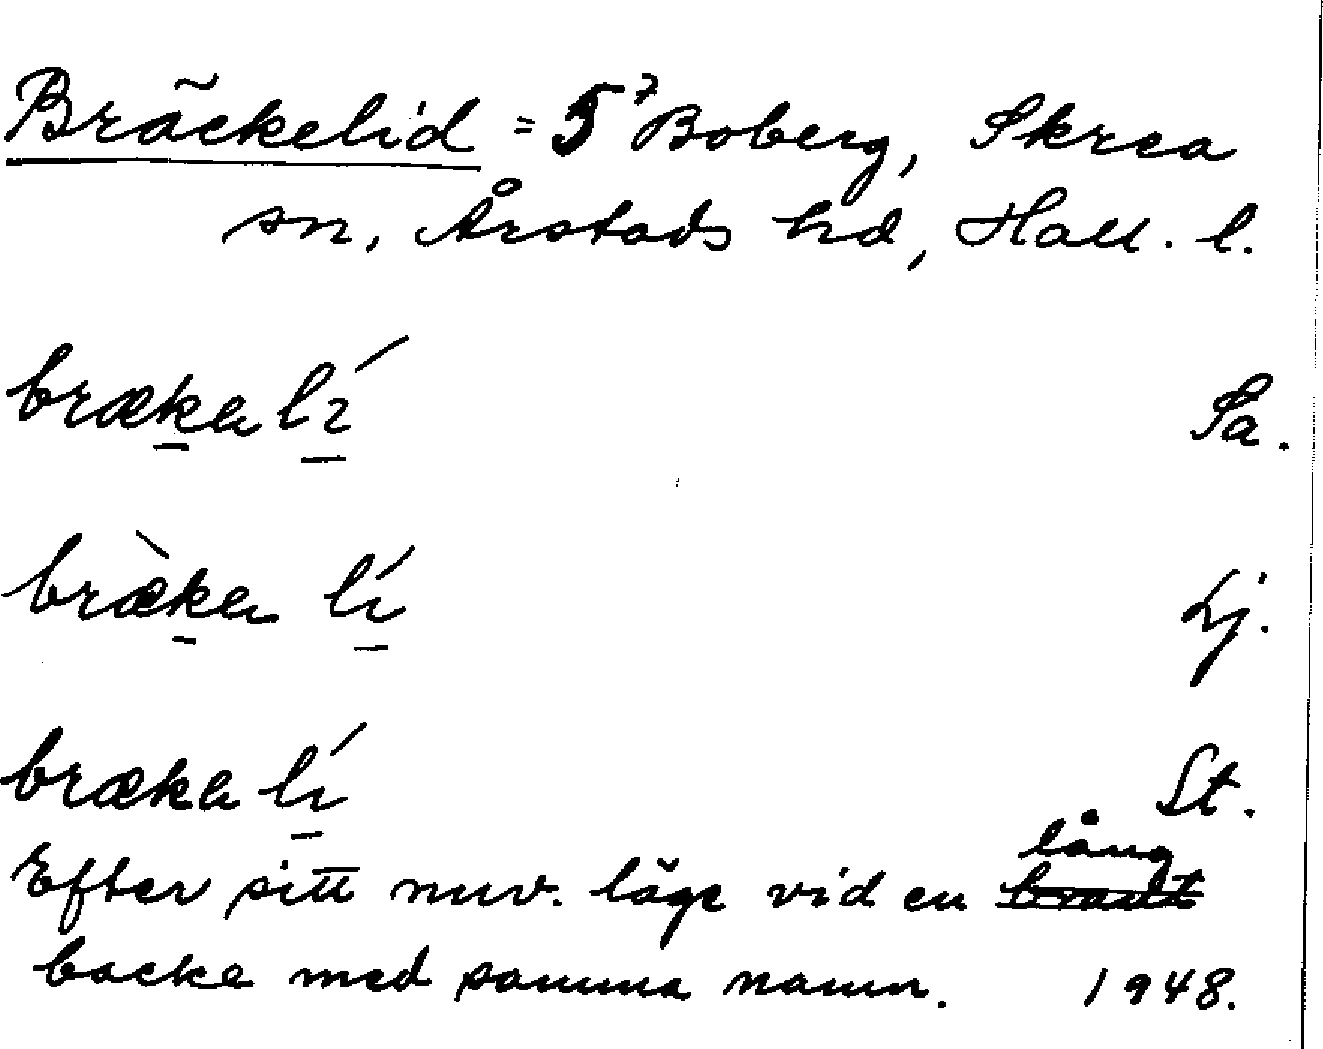 Bräckelid = 5⁷ Boberg, Skrea
sn, Årstads hd, Hall. l.
bræka lí Sa.
bræ̀ka lí Lj.
bræka lí St.
lång
Efter sitt nuv. läge vid en ~~brant~~
backe med samma namn. 1948.